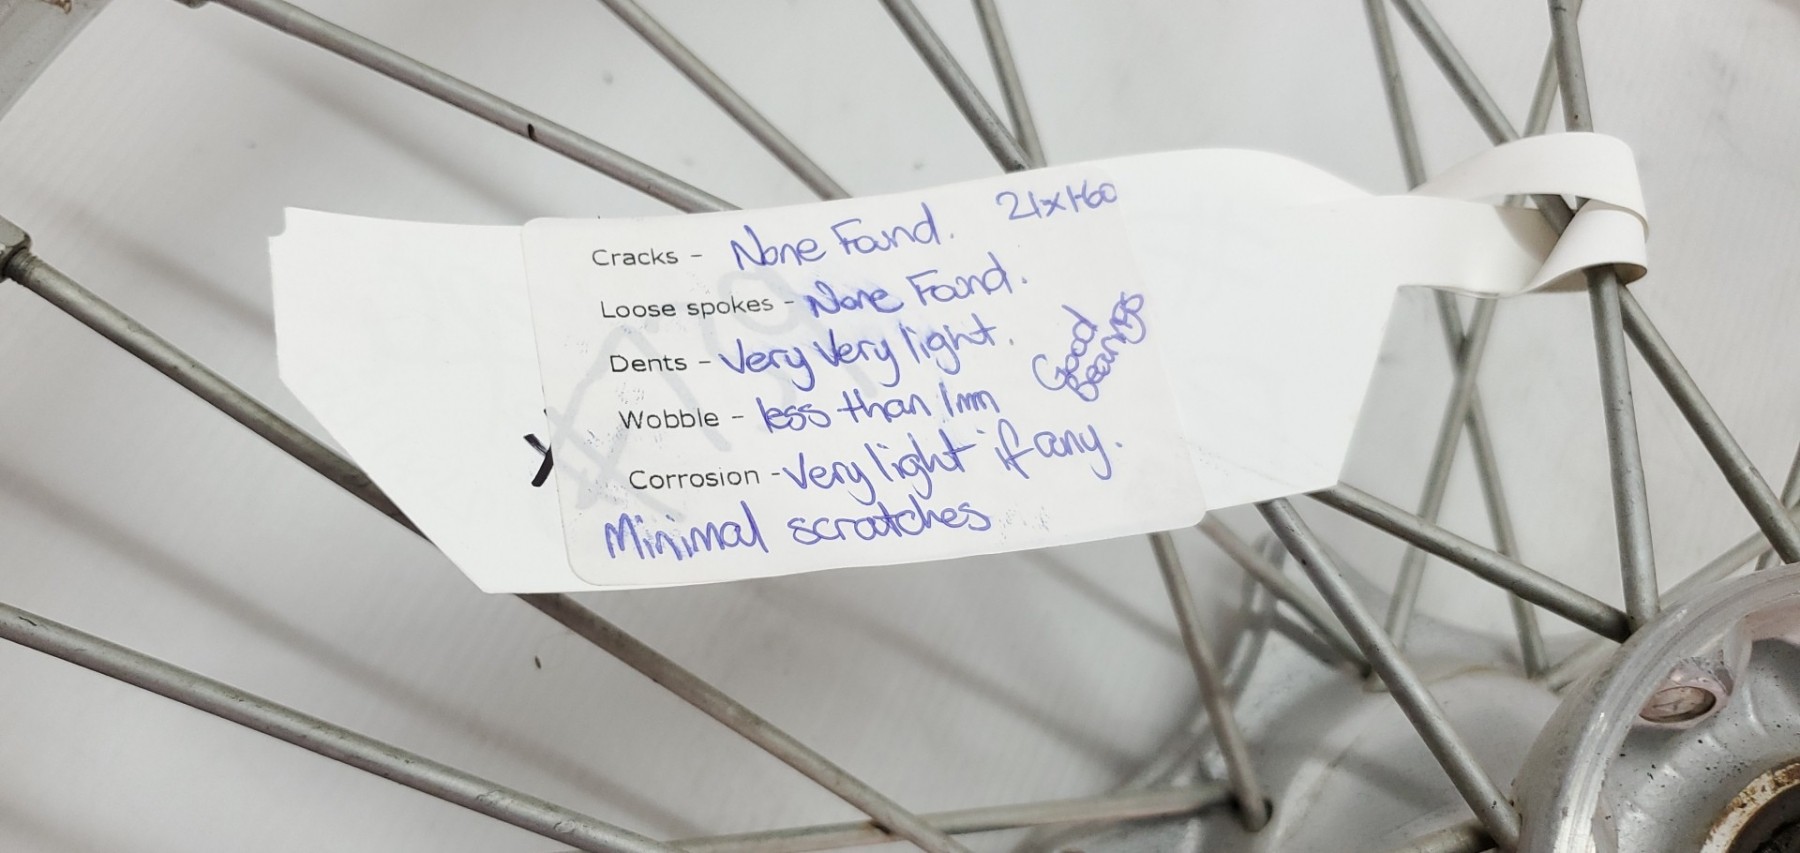 Cracks - None Found. 21x1.60
Loose spokes - None Found.
Dents - Very Very light.
Good
Bearings
Wobble - less than 1mm
Corrosion - Very light if any.
Minimal scratches